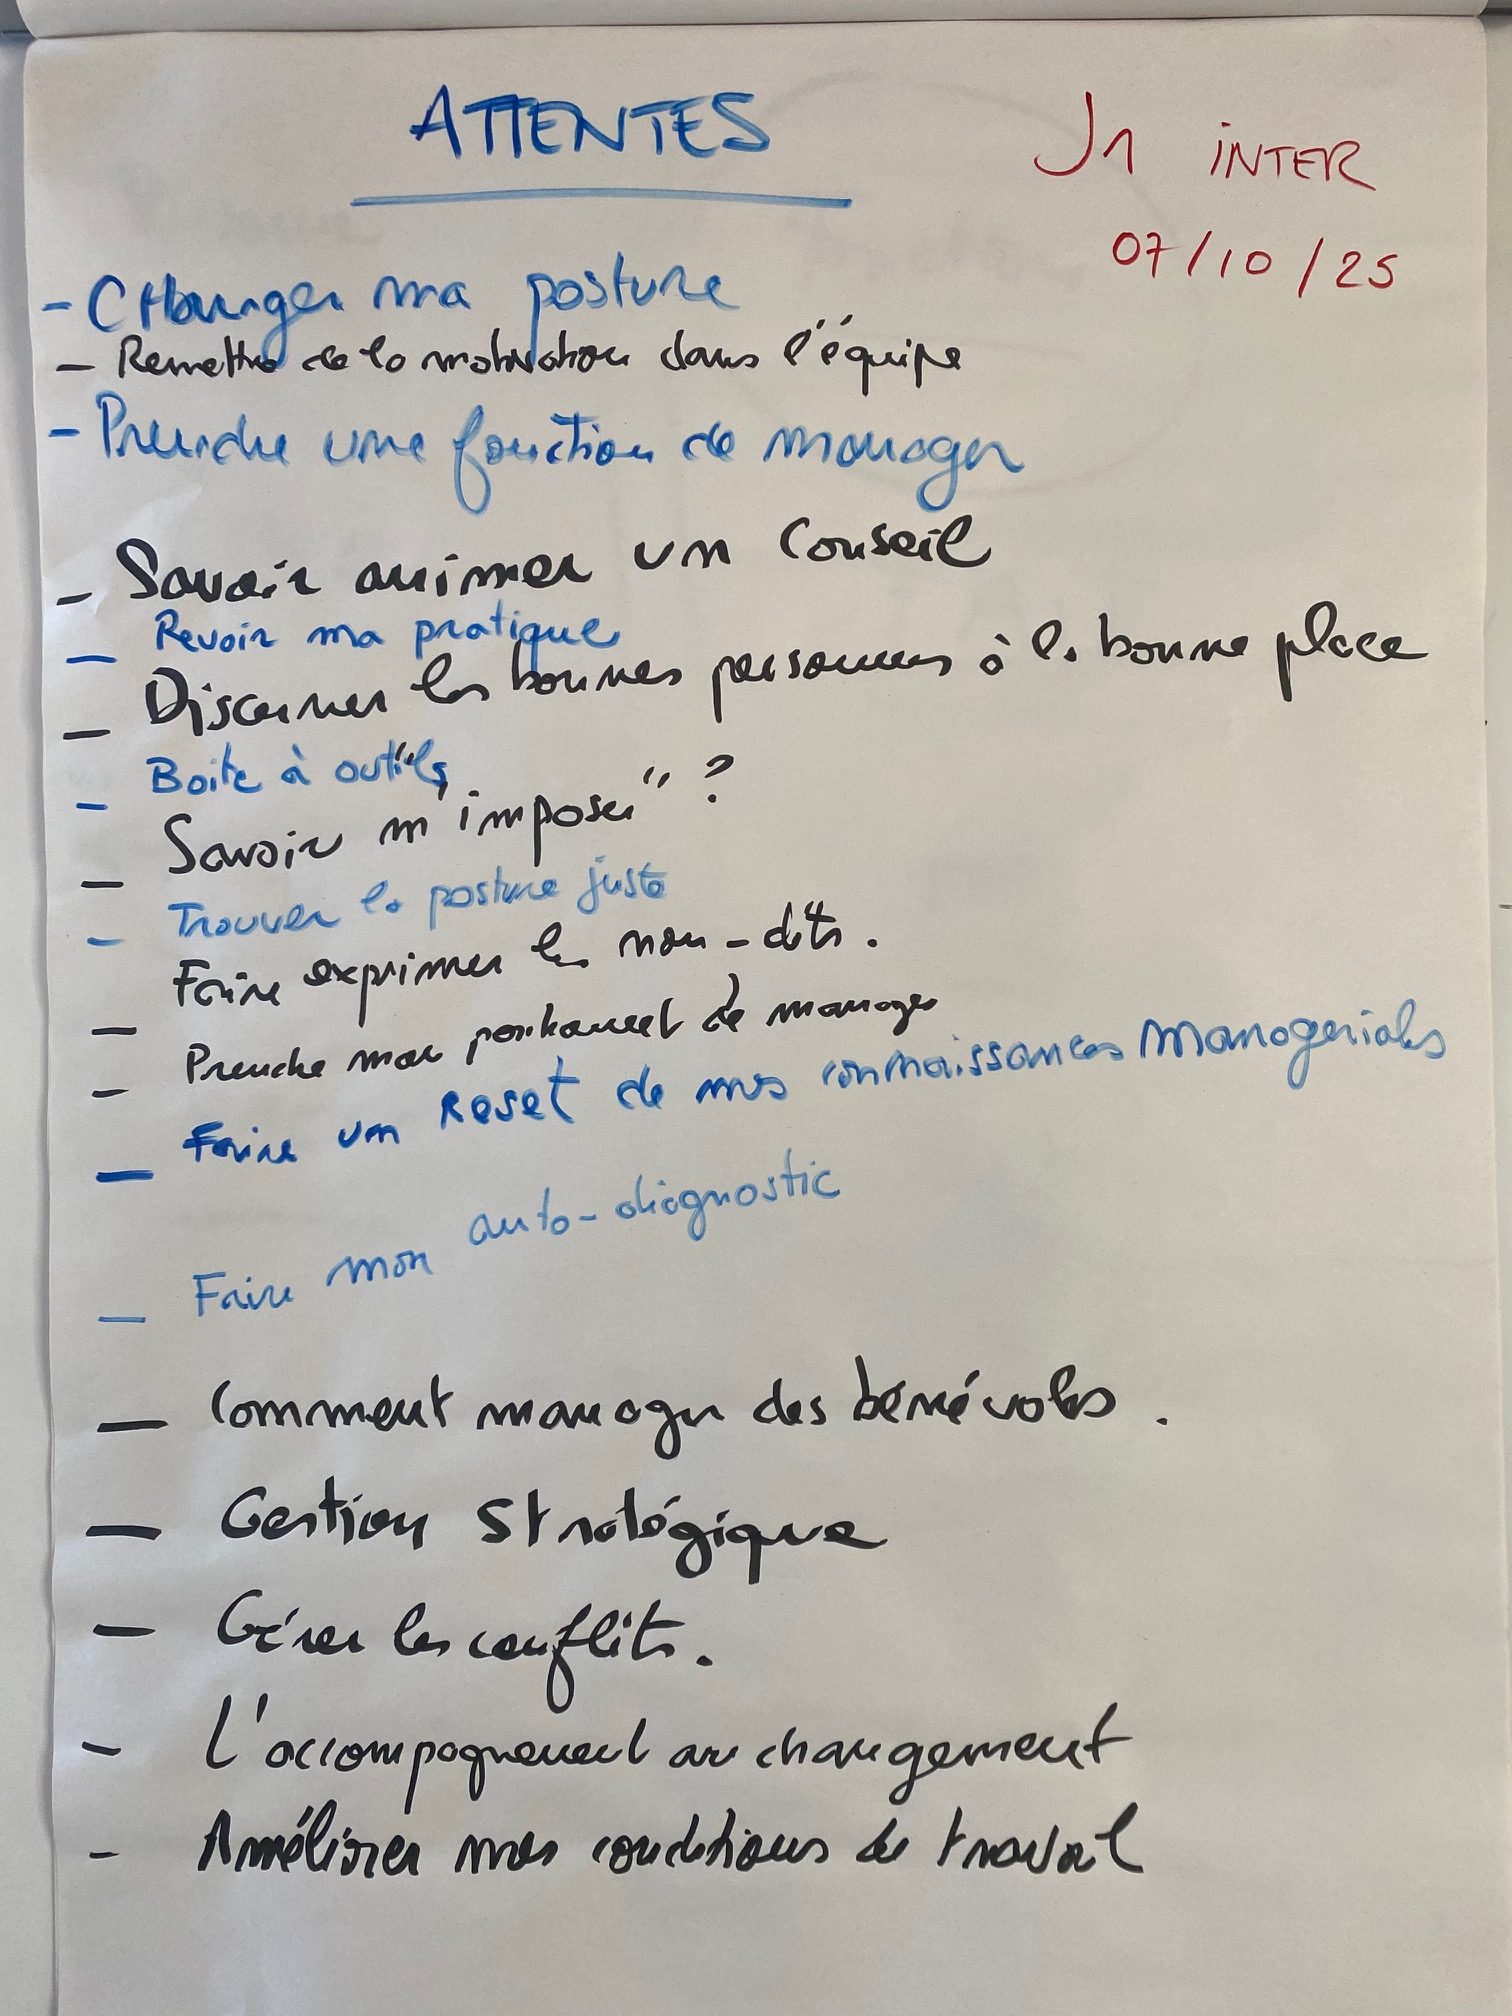 ATTENTES
J1 INTER
07/10/25
- CHanger ma posture
- Remettre de la motivation dans l'équipe
- Prendre une fonction de manager
- Savoir animer un Conseil
- Revoir ma pratique
- Discerner les bonnes personnes à la bonne place
- Boite à outils
- Savoir "m'imposer" ?
- Trouver la posture juste
- Faire exprimer les non-dits.
- Prendre mon positionnement de manager
- Faire un Reset de mes connaissances Manageriales
- Faire mon auto-diagnostic
- Comment manager des bénévoles.
- Gestion Stratégique
- Gérer les conflits.
- L'accompagnement au changement
- Améliorer mes conditions de travail